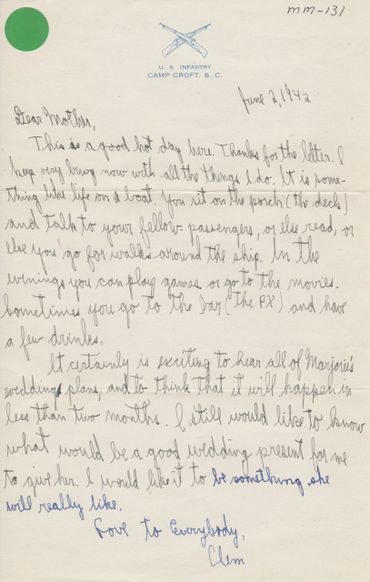 MM-131
U. S. INFANTRY
CAMP CROFT, S. C.
June 2, 1942
Dear Mother,
This is a good hot day here. Thanks for the letter. I
keep very busy now with all the things I do. It is some-
thing like life on a boat. You sit on the porch (the deck)
and talk to your fellow passengers, or else read, or
else you go for walks around the ship. In the
evenings you can play games or go to the movies.
Sometimes you go to the bar (the PX) and have
a few drinks.
It certainly is exciting to hear all of Marjorie's
wedding plans, and to think that it will happen in
less than two months. I still would like to know
what would be a good wedding present for me
to give her. I would like it to be something she
will really like.
Love to Everybody,
Clem